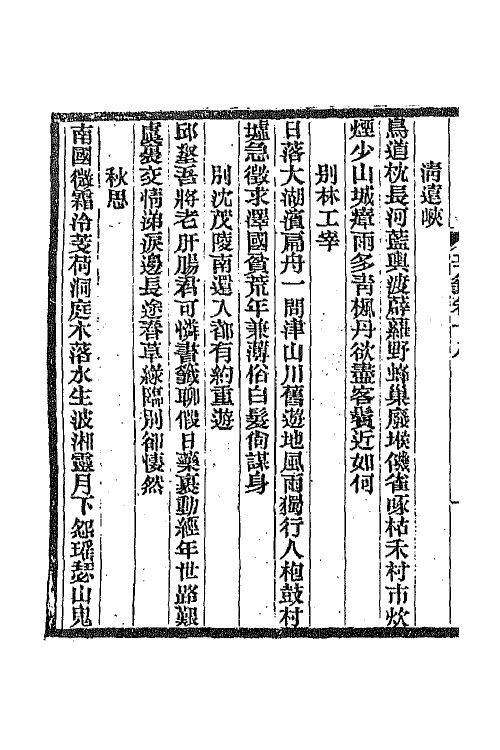 清遠峽
鳥道枕長河藍輿渡薜蘿野蜂巢廢堠饑雀啄枯禾村市炊
煙少山城瘴雨多靑楓丹欲盡客鬢近如何
別林工宰
日落大湖濱扁舟一問津山川舊遊地風雨獨行人枹鼓村
墟急徵求澤國貧荒年兼薄俗白髮尙謀身
別沈茂陵南還入都有約重遊
邱壑吾將老肝腸君可憐書籤聊假日藥裹動經年世路艱
虞裏交情涕淚邊長途春草綠臨別卻悽然
秋思
南國微霜冷芰荷洞庭木落水生波湘靈月下怨瑤瑟山鬼